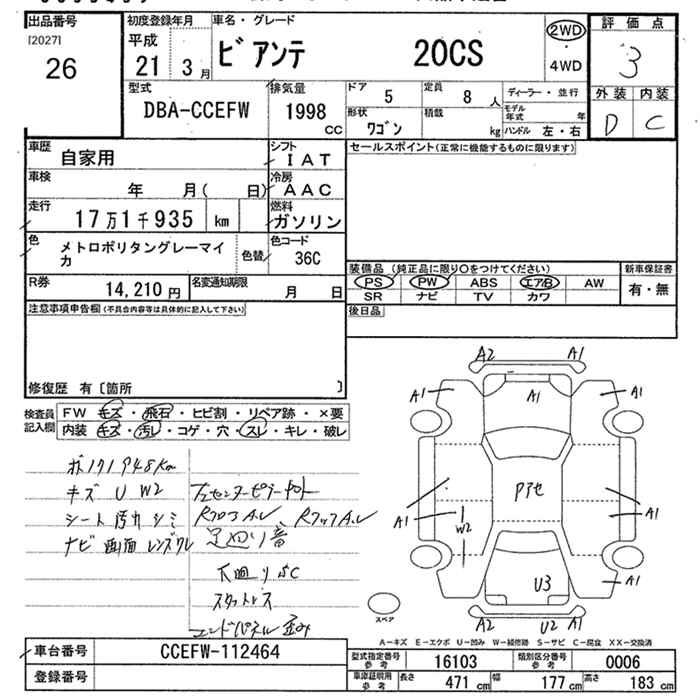 出品番号
[2027]
26
初度登録年月
平成
21 3月
車名・グレード
ビアンテ 20CS
2WD
・
4WD
評価点
3
外装 内装
D C
型式
DBA-CCEFW
排気量
1998
CC
ドア
5
定員
8 人
形状
ワゴン
積載
kg
ディーラー・並行
モデル年式 年
ハンドル 左・右
車歴
自家用
シフト
IAT
車検
年 月( 日)
冷房
AAC
走行
17万1千935 km
燃料
ガソリン
色
メトロポリタングレーマイカ
色替
色コード
36C
R券
14,210 円
名変通知期限
月 日
セールスポイント(正常に機能するものに限ります)
装備品 (純正品に限り○をつけてください)
PS PW ABS エアB AW
SR ナビ TV カワ
新車保証書
有・無
後日品
注意事項申告欄(不具合内容等は具体的に記入して下さい)
修復歴 有〔箇所 〕
検査員
記入欄
FW キズ・飛石・ヒビ割・リペア跡・×要
内装 キズ・汚レ・コゲ・穴・スレ・キレ・破レ
キズ U W2
シート 汚れ シミ
ナビ 画面 レンズワレ
足廻り音
下廻りSC
スタットレス
エンドパネル歪み
A2 A1
A1 A1 A1
A1 A1
W2
U3
A1
A2 U2 A1
スペア
A－キズ E－エクボ U－凹み W－補修跡 S－サビ C－腐食 XX－交換済
車台番号
CCEFW-112464
登録番号
型式指定番号
参考
16103
類別区分番号
参考
0006
車庫証明用
参考
長さ 471 cm
幅 177 cm
高さ 183 cm